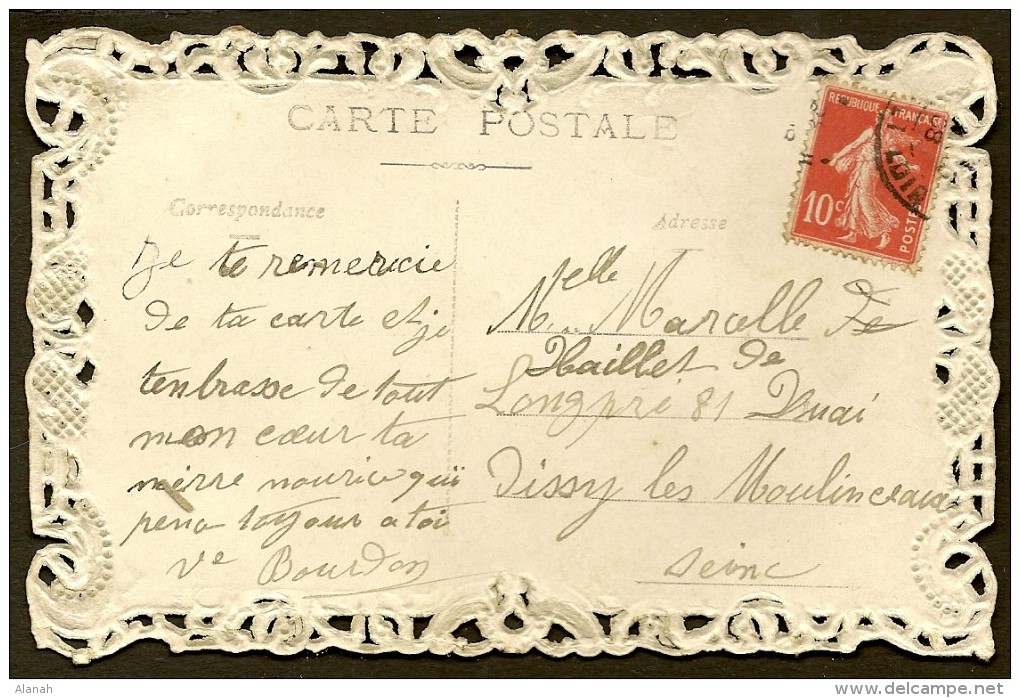 CARTE POSTALE
Correspondance
Je te remercie
de ta carte et je
tenbrasse de tout
mon cœur ta
mèrre nourice qui
pens toujour a toi
Ve Bourdon
Adresse
Melle Marcelle De
Haillet de
Longpré 81 Quai
Dissy les Moulinceaux
Seine
REPUBLIQUE FRANÇAISE
10c
POSTES
LOIR
Alanah
www.delcampe.net